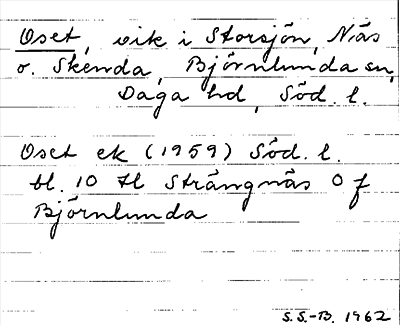 Oset, vik i Storsjön, Näs
o. Skenda, Björnlunda sn,
Daga hd, Söd. l.
Oset ek (1959) Söd. l.
bl. 10 tl Strängnäs O f
Björnlunda
S.S.-B. 1962